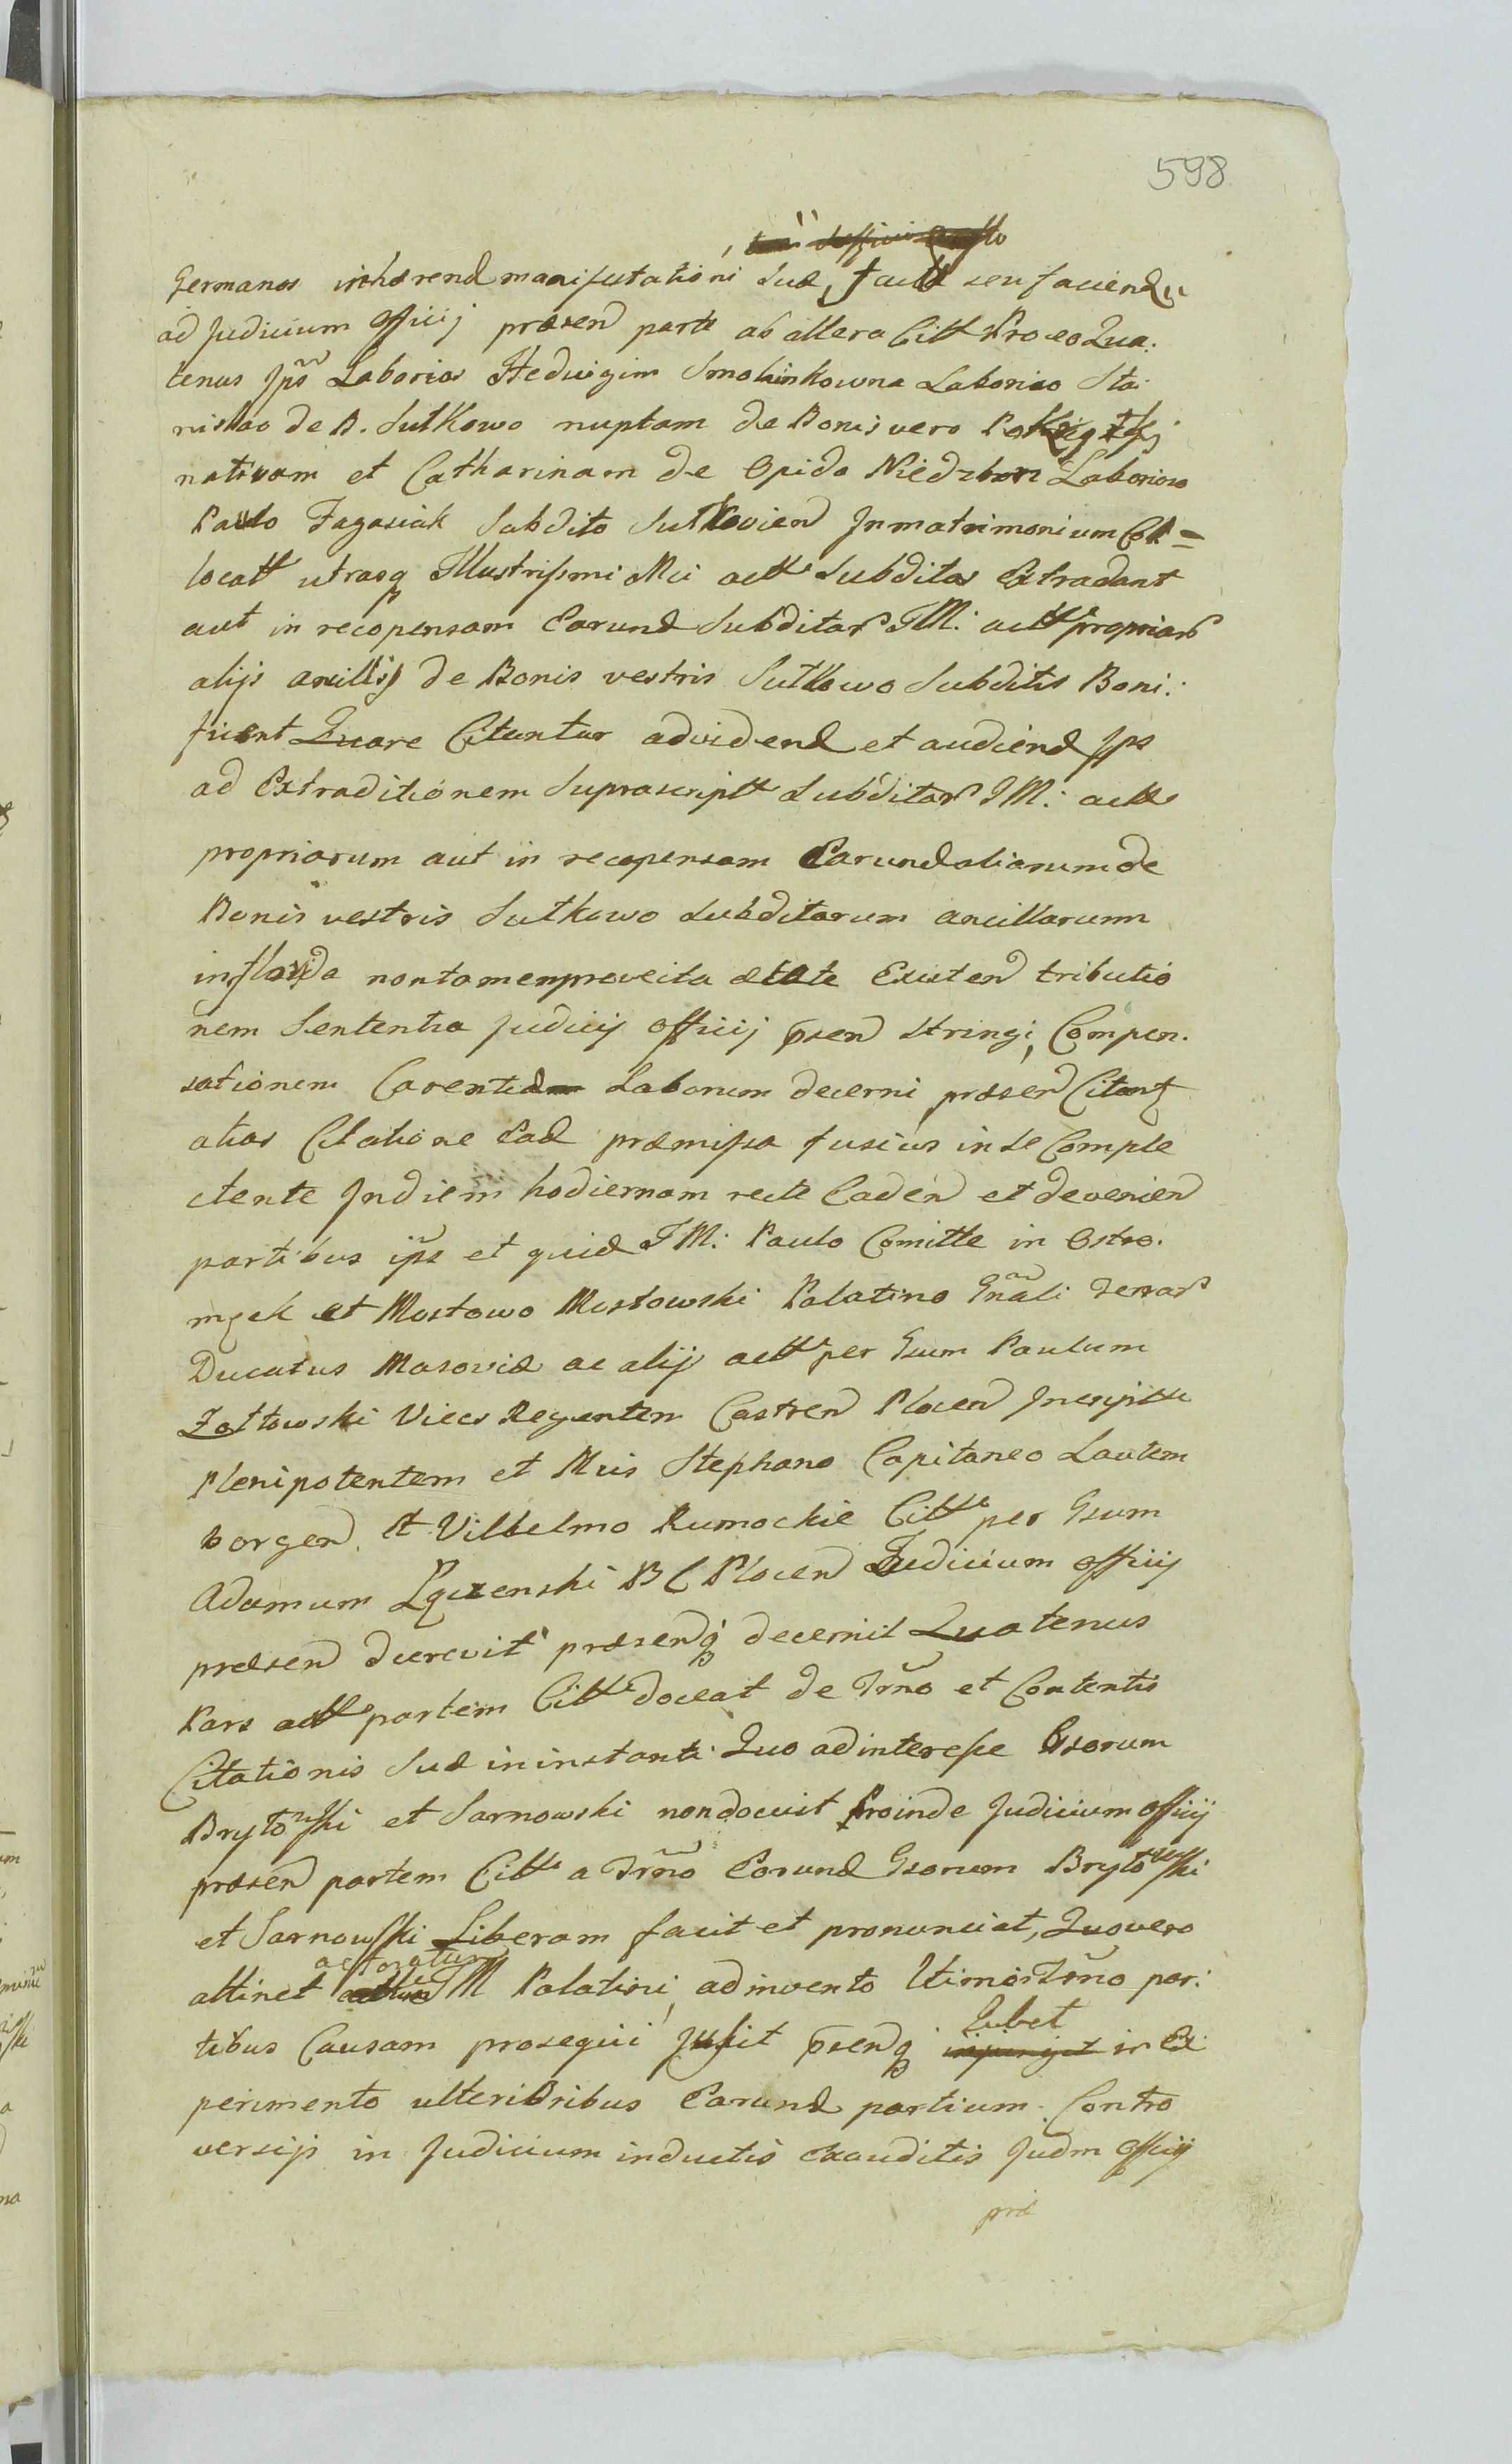 598
Germanos inhærend manifestationi suæ, factæ seu faciend
ad Judicium Officij præsen parte ab altera Citt Proco Qua:
tenus Jps Laborios Hedvigim Smolinkowna Laborioso Sta:
nislao de B. Sutkowo nuptam de Bonis vero
nativam et Catharinam de Opido Niedzborz Laborioso
Paulo Fagasiak Subdito Sutkovien In matrimonium Col=
locatt utrasq Illustrissimi Mci actt Subditas Extradant
aut in recopensam Earund Subditar JM: actt propriar
alijs ancillis de Bonis vestris Sutkowo Subditis Boni:
ficent Quare Citantur ad vidend et audiend Jps
ad Extraditionem Suprascriptt Subditar JM: actt
propriarum aut in recopensam Earund aliarum de
Bonis vestris Sutkowo Subditarum ancillarum
in florida non tamen proveita ætate Existen tributio
nem Sententia Judicij Officij psen stringi, Compen:
sationem Carentiæ Laborum decerni præsen Citant
alias Citatione Ead præmissa fusius in se Comple
ctente In diem hodiernam recte Caden et devenien
partibus ips et quid JM: Paulo Comitte in Ostro:
męck et Mostowo Mostowski Palatino Gnali Terrar
Ducatus Masoviæ ac alij actt per Gsum Paulum
Żołtowski Vices Regentem Castren Plocen Inscriptt
Plenipotentem et Mcis Stephano Capitaneo Lautem
borgen. et Vilhelmo Rumockie Citt per Gsum
Adamum Łączenski B C Plocen Judicium Officij
præsen decrevit præsenq decernit Quatenus
Pars actt partem Citt doceat de Trno et Contentis
Citationis Suæ in instanti Quo ad interesse Gsorum
Brytowski et Sarnowski non docuit Proinde Judicium Officij
præsen partem Citt a Trno Eorund Gsorum Brytowski
et Sarnowski Liberam facit et pronunciat, Quo vero
attinet actoratum JM Palatini, ad invento Trno par:
tibus Causam prosequi Jussit psenq Jubet in Ex
perimento ulterioribus Earund partium Contro
versijs in Judicium inductis exauditis Judm Officij
præ